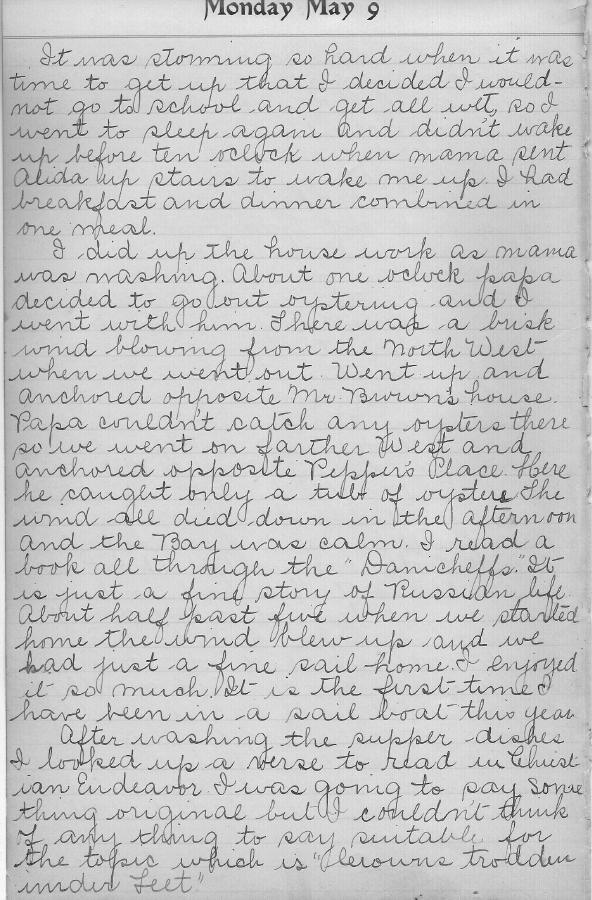 Monday May 9
It was storming so hard when it was
time to get up that I decided I would-
not go to school and get all wet, so I
went to sleep again and didn't wake
up before ten oclock when mama sent
Alida up stairs to wake me up. I had
breakfast and dinner combined in
one meal.
I did up the house work as mama
was washing. About one oclock papa
decided to go out oystering and I
went with him. There was a brisk
wind blowing from the North West
when we went out. Went up and
anchored opposite Mr. Brown's house.
Papa couldn't catch any oysters there
so we went on farther West and
anchored opposite Pepper's Place. Here
he caught only a tub of oysters. The
wind all died down in the afternoon
and the Bay was calm. I read a
book all through the "Danicheffs." It
is just a fine story of Russian life.
About half past five when we started
home the wind blew up and we
had just a fine sail home. I enjoyed
it so much. It is the first time I
have been in a sail boat this year.
After washing the supper dishes
I looked up a verse to read in Christ-
ian Endeavor. I was going to say some
thing original but I couldn't think
of any thing to say suitable for
the topic which is "Crowns trodden
under Feet"